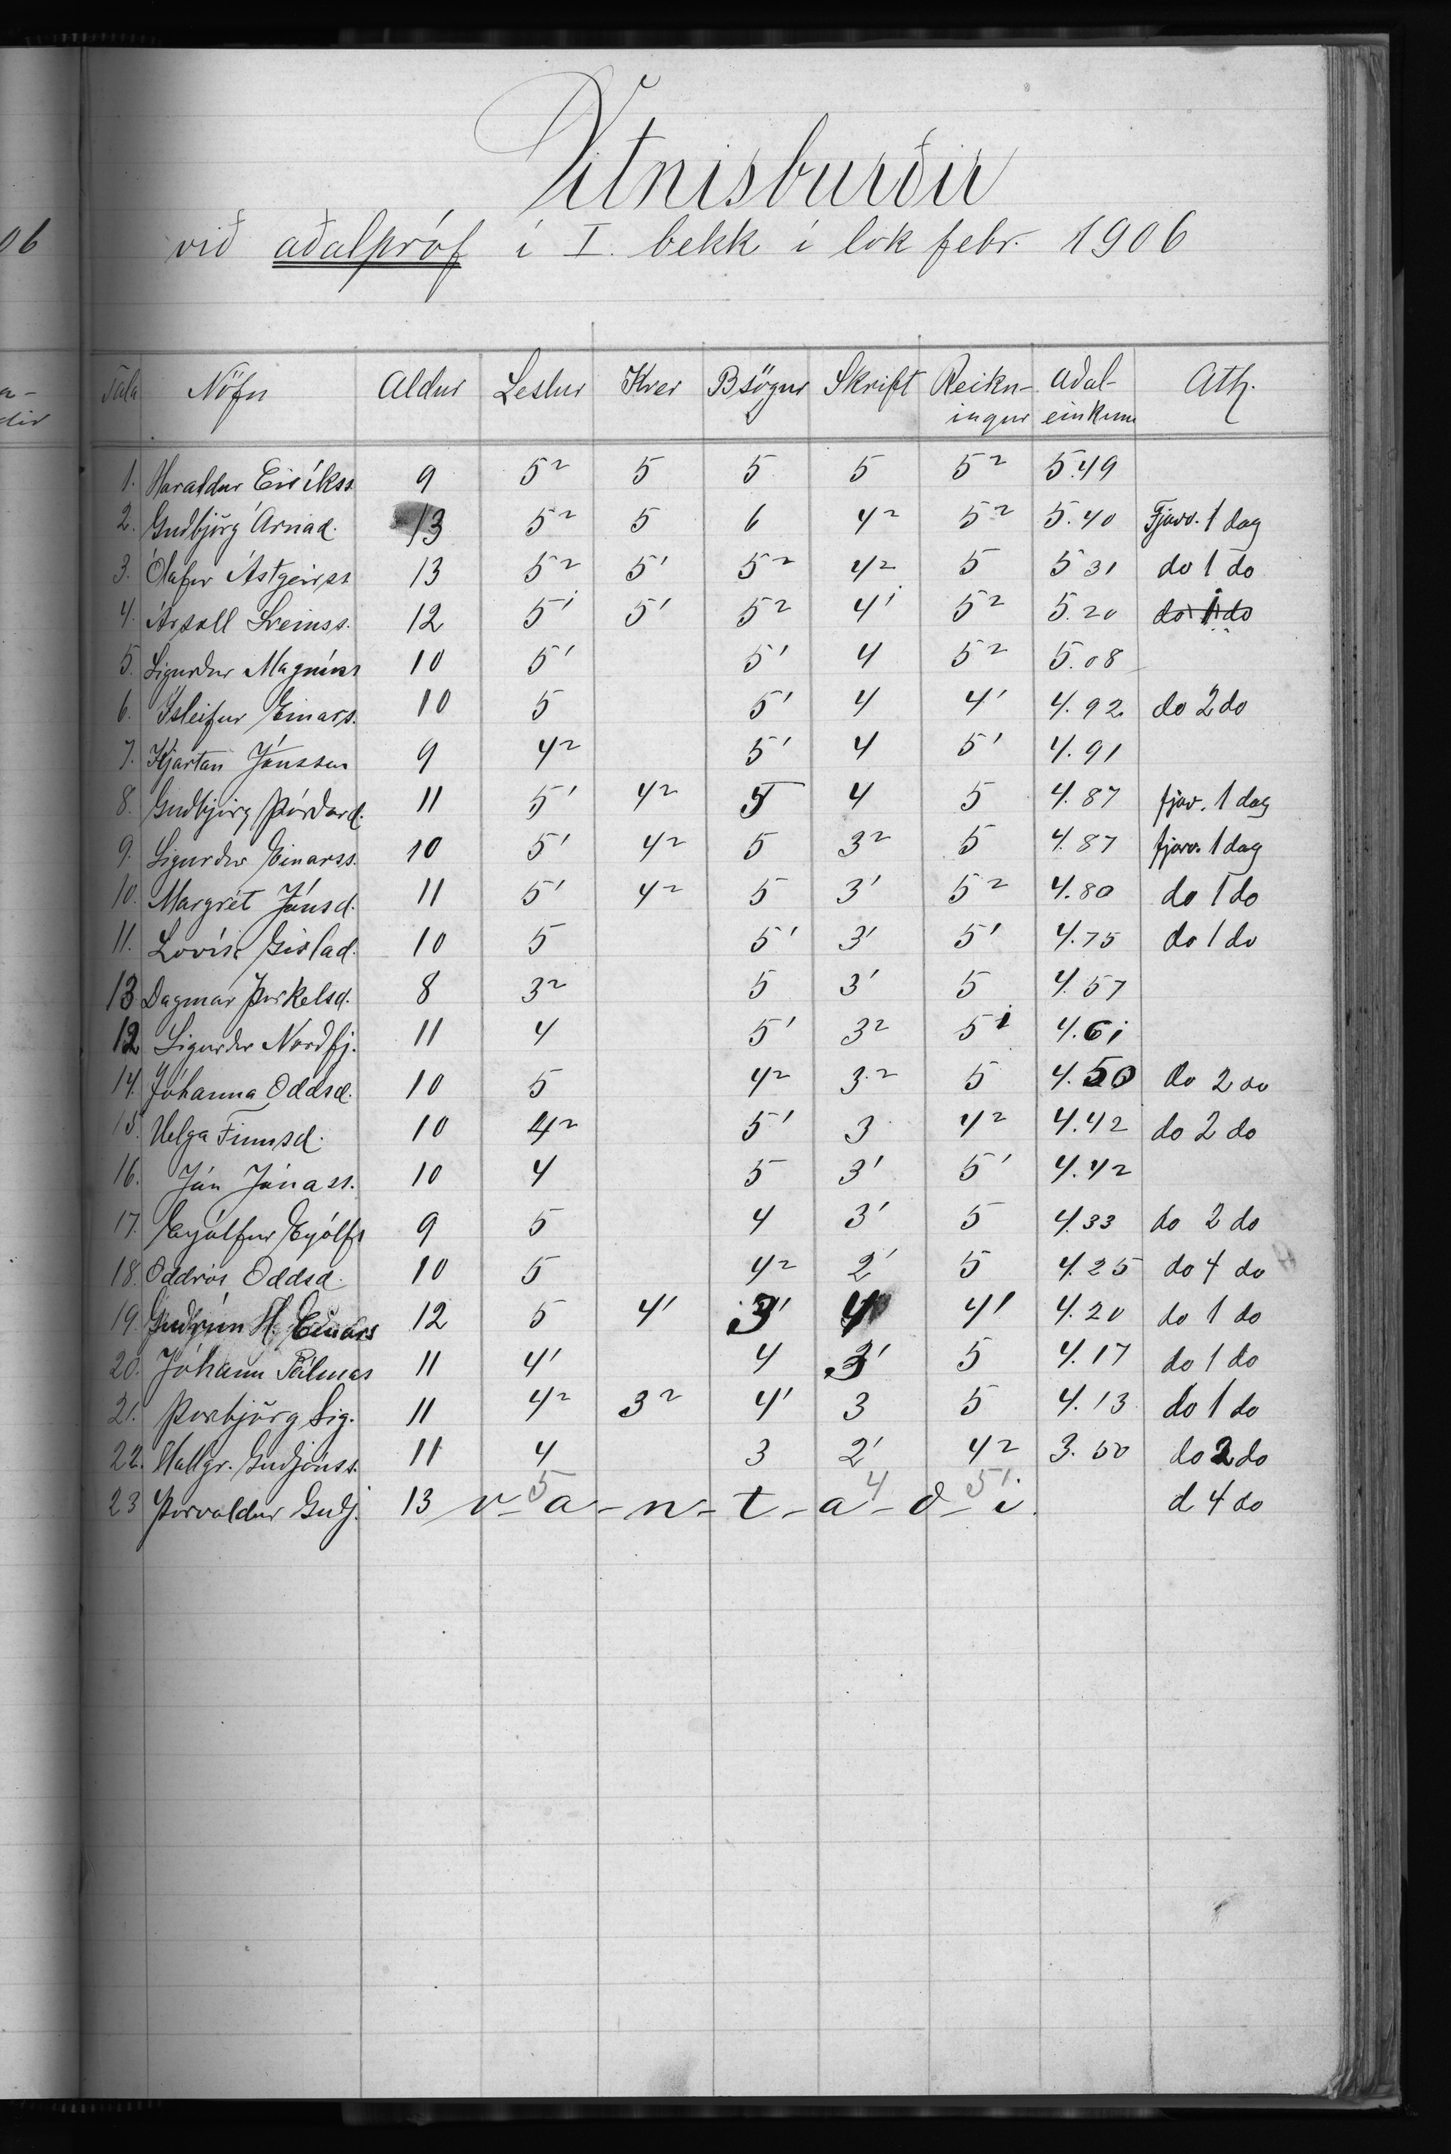 06
Vitnisburðir
við aðalpróf í I. bekk í lok febr. 1906
Tala Nöfn Aldur Lestur Kver Bsögur Skrift Reikningur Aðaleinkunn Ath.
1. Haraldur Eiríkss 9 5² 5 5 5 5² 5.49
2. Guðbjörg Árnad. 13 5² 5 6 4² 5² 5.40 Fjarv. 1 dag
3. Ólafur Ástgeirss 13 5² 5' 5² 4² 5 5 31 do 1 do
4. Ársæll Sveinss. 12 5' 5' 5² 4' 5² 5.20 do 1 do
5. Sigurður Magnúss 10 5' 5' 4 5² 5.08
6. Ísleifur Einars. 10 5 5' 4 4' 4.92 do 2 do
7. Kjartan Jónsson 9 4² 5' 4 5' 4.91
8. Guðbjörg Þórðard. 11 5' 4² 5 4 5 4.87 fjav. 1 dag
9. Sigurður Einarss. 10 5' 4² 5 3² 5 4.87 fjarv. 1 dag
10. Margrét Jónsd. 11 5' 4² 5 3' 5² 4.80 do 1 do
11. Lovísa Gíslad. 10 5 5' 3' 5' 4.75 do 1 do
13 Dagmar Þorkelsd. 8 3² 5 3' 5 4.57
12 Sigurður Nordfj. 11 4 5' 3² 5' 4.61
14. Jóhanna Oddsd. 10 5 4² 3² 5 4.50 do 2 do
15. Helga Finnsd. 10 4² 5' 3 4² 4.42 do 2 do
16. Jón Jónass. 10 4 5 3' 5' 4.42
17. Eyjólfur Eyjólfs 9 5 4 3' 5 4.33 do 2 do
18. Oddrós Oddsd. 10 5 4² 2' 5 4.25 do 4 do
19. Guðrún H. Einars 12 5 4' 3' 4 4' 4.20 do 1 do
20. Jóhann Pálmas 11 4' 4 3' 5 4.17 do 1 do
21. Þorbjörg Sig. 11 4² 3² 4' 3 5 4.13 do 1 do
22. Hallgr. Guðjónss. 11 4 3 2' 4² 3.50 do 2 do
23 Þorvaldur Guðj. 13 v-a-n-t-a-ð-i. 5 4 5' d 4 do